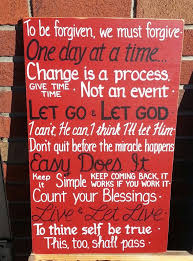 To be forgiven, we must forgive
One day at a time...
Change is a process,
GIVE TIME TIME · Not an event.
LET GO & LET GOD
I can't, He can, I think I'll let Him
Don't quit before the miracle happens
Easy Does It
Keep it Simple KEEP COMING BACK, IT WORKS IF YOU WORK IT.
Count your Blessings.
Live & Let Live
To thine self be true.
This, too, shall pass